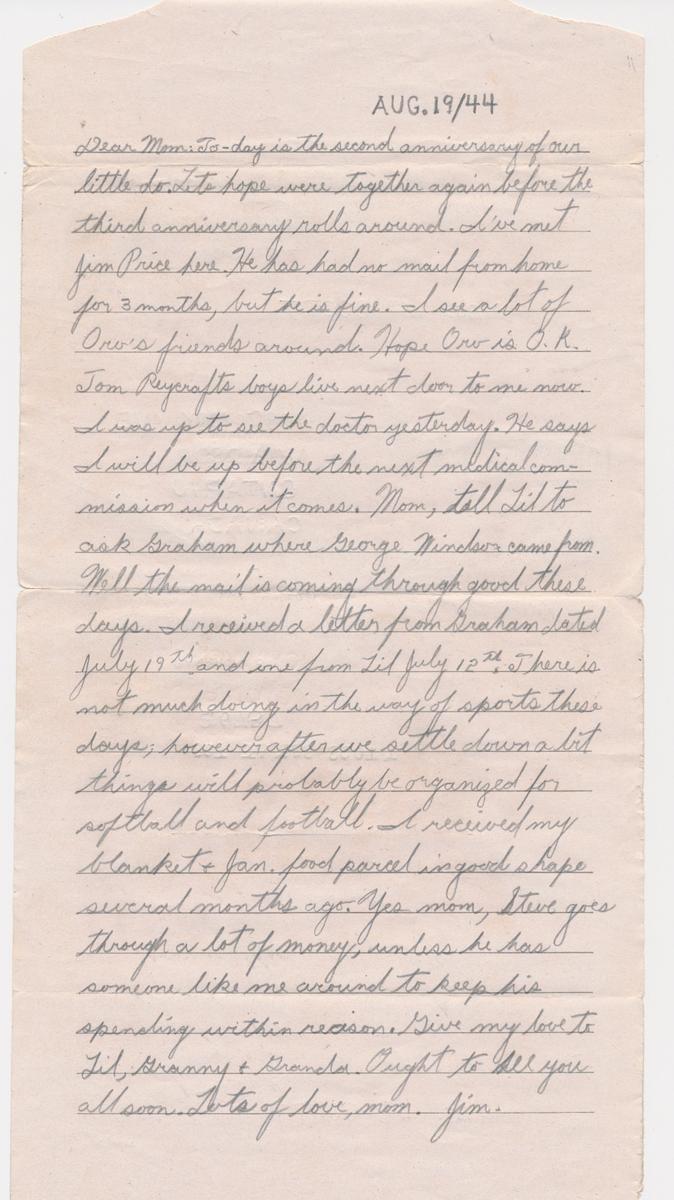 AUG.19/44
Dear Mom: To-day is the second anniversary of our
little do. Lets hope were together again before the
third anniversary rolls around. I've met
Jim Price here. He has had no mail from home
for 3 months, but he is fine. I see a lot of
Orv's friends around. Hope Orv is O.K.
Tom Reycrafts boys live next door to me now.
I was up to see the doctor yesterday. He says
I will be up before the next medical com-
mission when it comes. Mom, tell Lil to
ask Graham where George Windsor came from.
Well the mail is coming through good these
days. I received a letter from Graham dated
July 19th and one from Lil July 12th. There is
not much doing in the way of sports these
days; however after we settle down a bit
things will probably be organized for
softball and football. I received my
blanket + Jan. food parcel in good shape
several months ago. Yes mom, Steve goes
through a lot of money, unless he has
someone like me around to keep his
spending within reason. Give my love to
Lil, Granny + Granda. Ought to see you
all soon. Lots of love, mom. Jim.